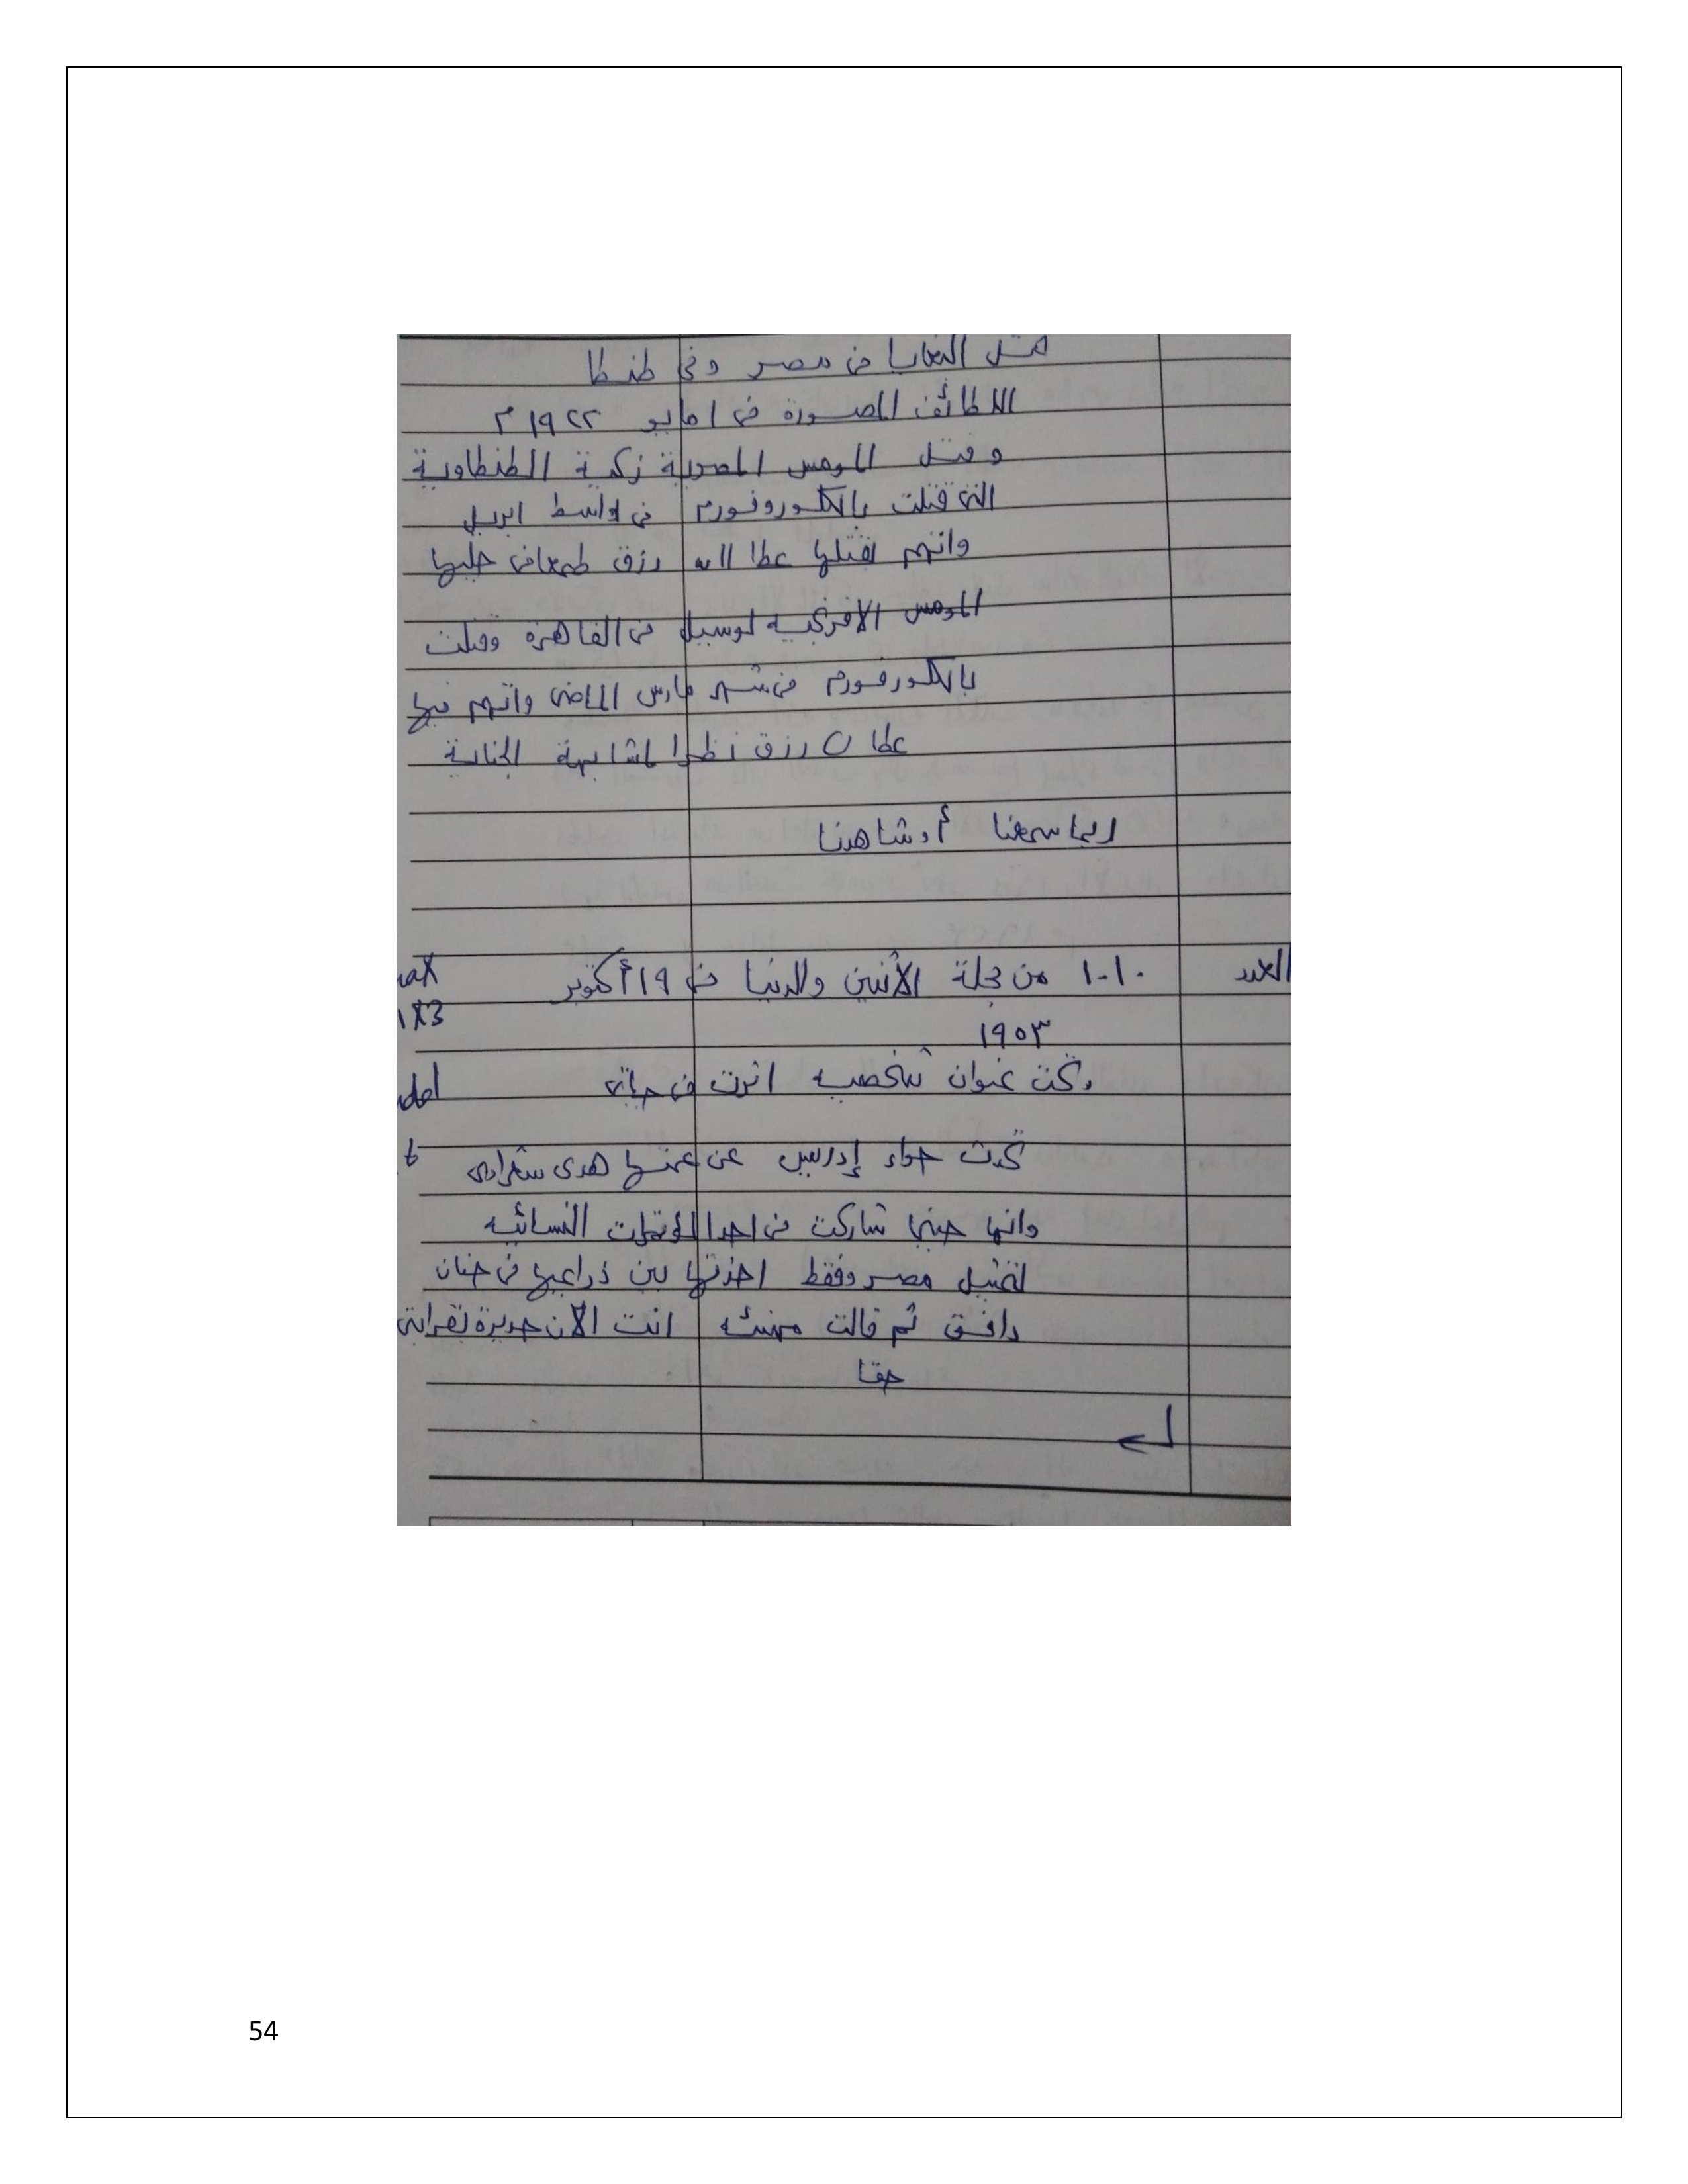 قتل البغايا فى مصر وفى طنطا
اللطائف المصورة فى ١ مايو ١٩٢٢ م
وقتل المومس المصرية زكية الطنطاوية
التى قتلت بالكلوروفورم فى اواسط ابريل
واتهم بقتلها عطا الله رزق طمعا فى حليها
المومس الافرنجية لوسيل فى القاهرة وقتلت
بالكلورفورم فى شهر مارس الماضى واتهم فيها
عطا رزق نظرا لمشابهة الجناية
ربما سمعنا أو شاهدنا
العدد ١٠١٠ من مجلة الأثنين والدنيا فى ١٩ أكتوبر
١٩٥٣
وتحت عنوان شخصيه اثرت فى حياتى
تحدثت حواء إدريس عن عمتها هدى شعراوى
وانها حينما شاركت فى احد المؤتمرات النسائيه
لتمثيل مصر وفقط اخذتها بين ذراعيها فى حنان
دافق ثم قالت مهنئه انت الآن جديرة بقرابتى
حقا
54